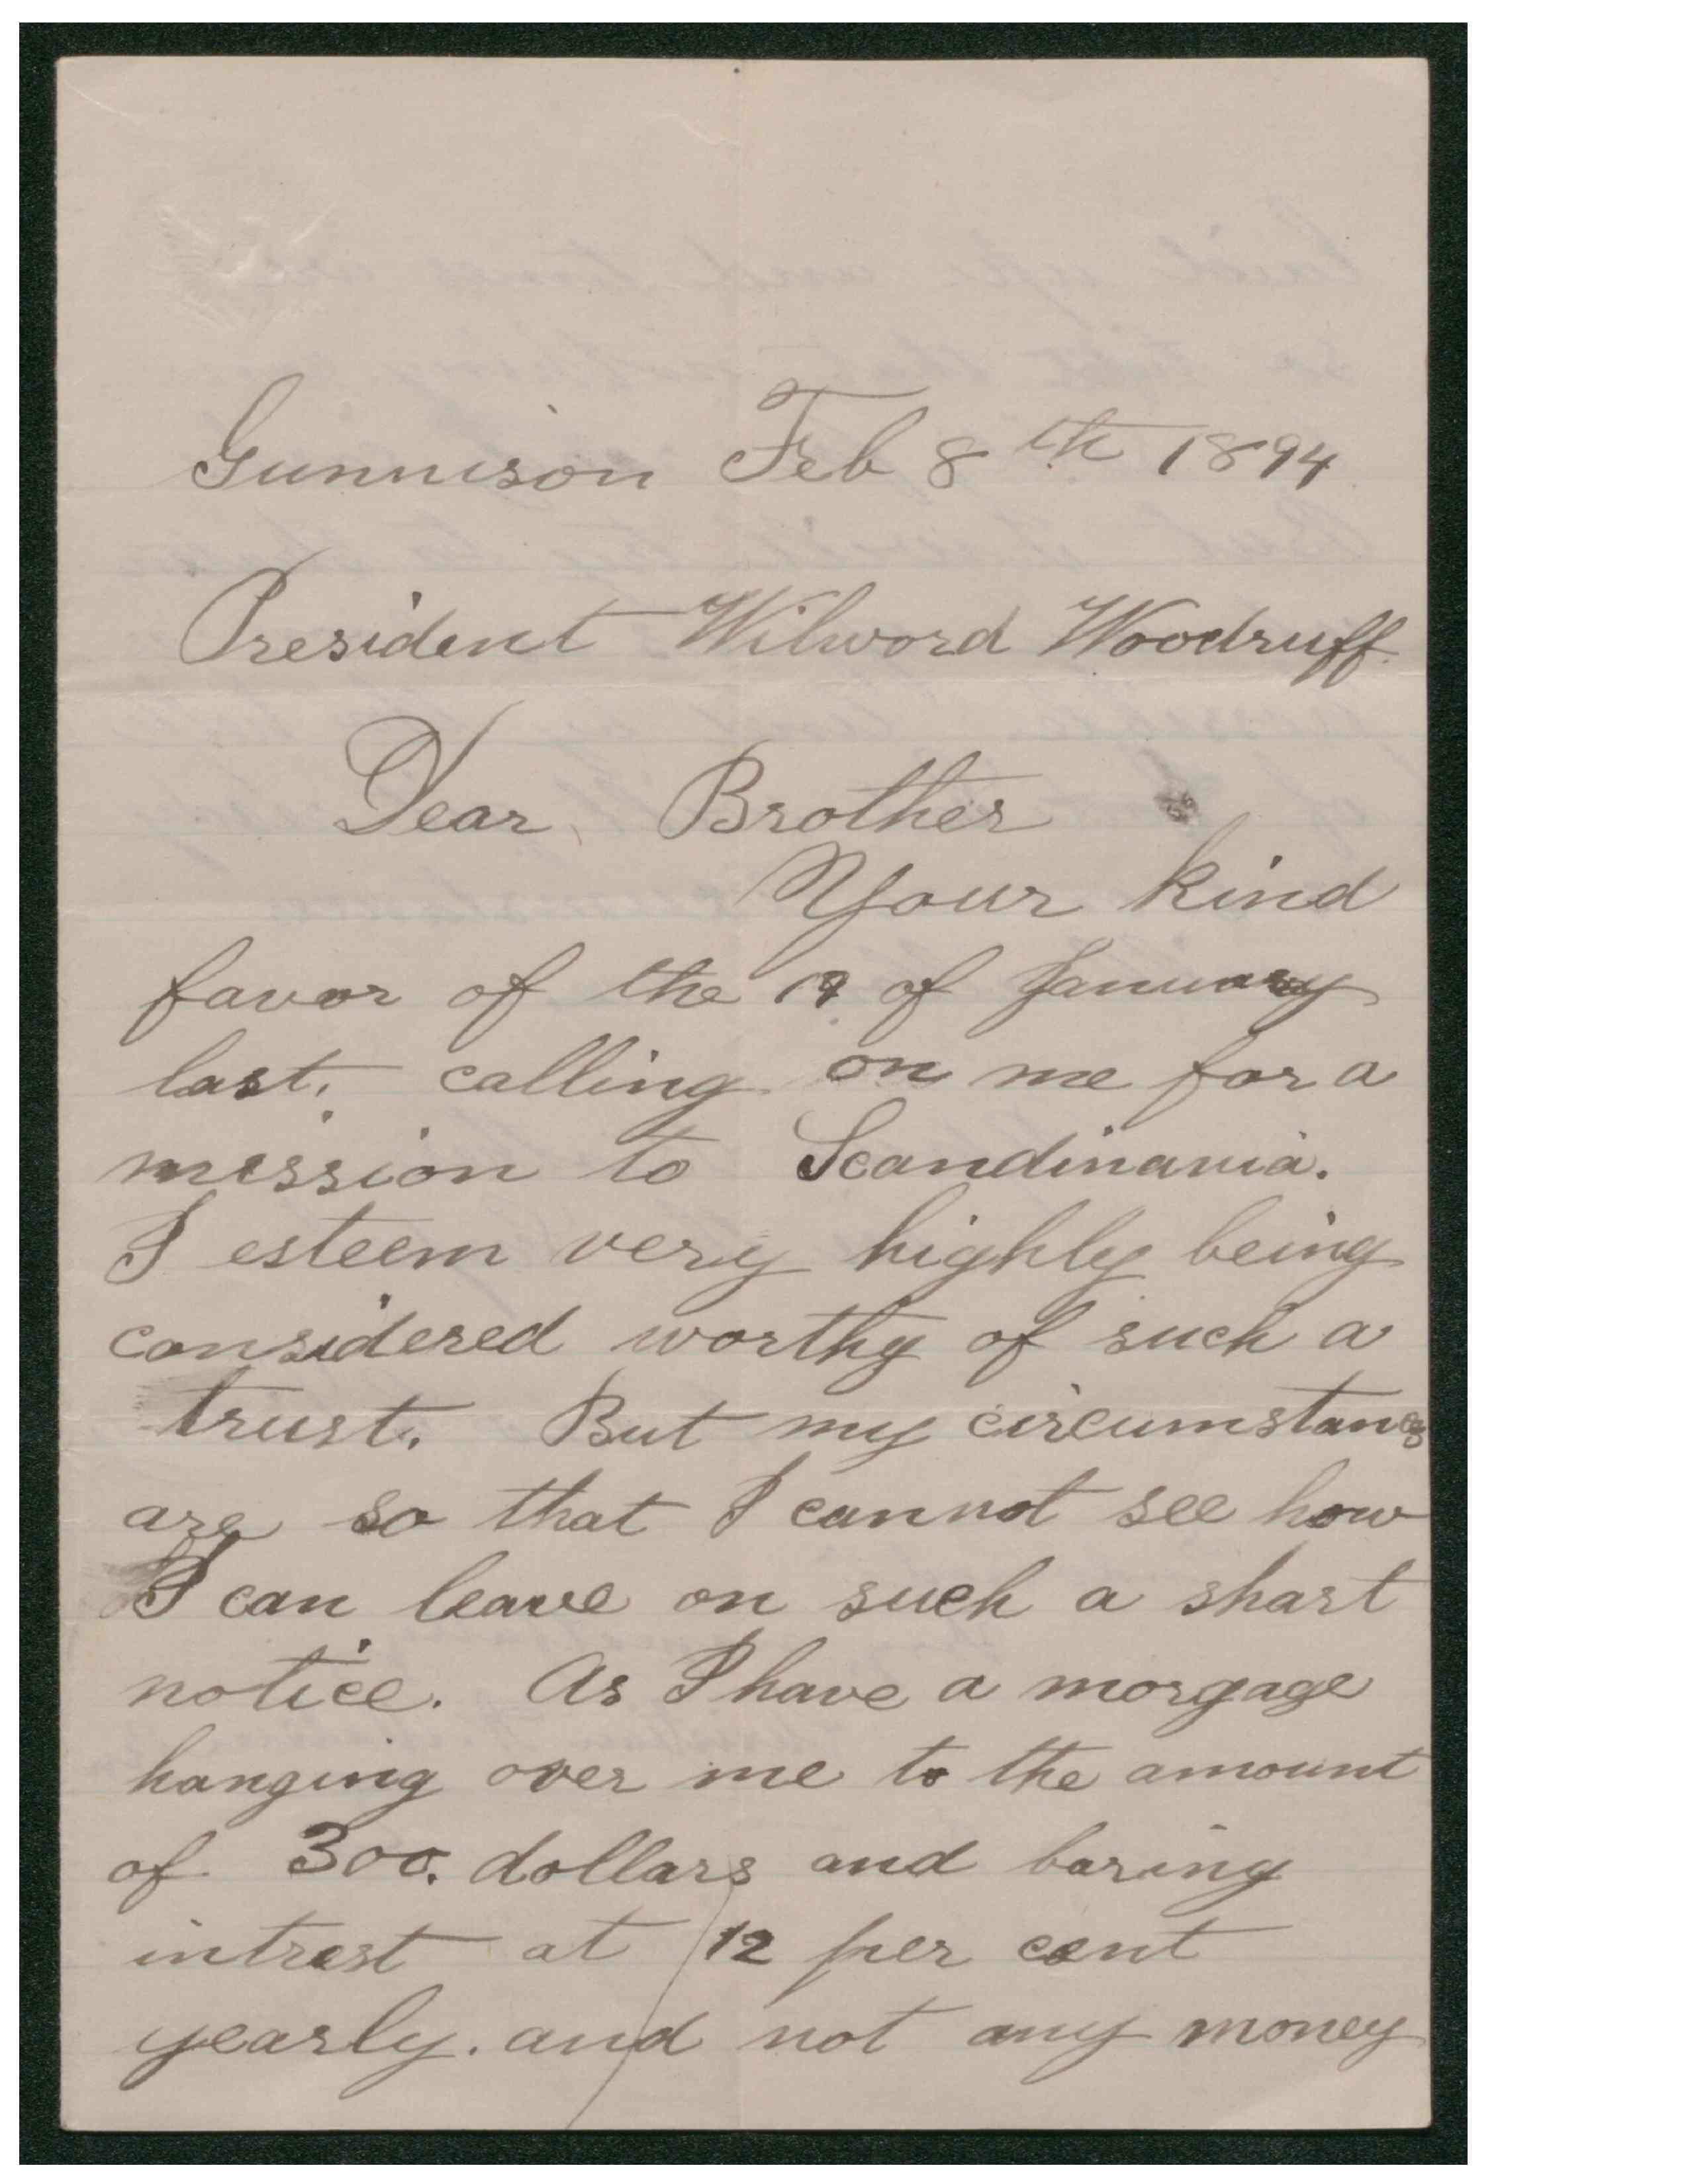 Gunnison Feb 8th 1894
President Wilword Woodruff.
Dear Brother
Your kind
favor of the 19 of January
last. calling on me for a
mission to Scandinavia.
I esteem very highly being
considered worthy of such a
trust. But my circumstances
are so that I cannot see how
I can leave on such a short
notice. As I have a morgage
hanging over me to the amount
of 300. dollars and baring
intrest at 12 per cent
yearly. and not any money